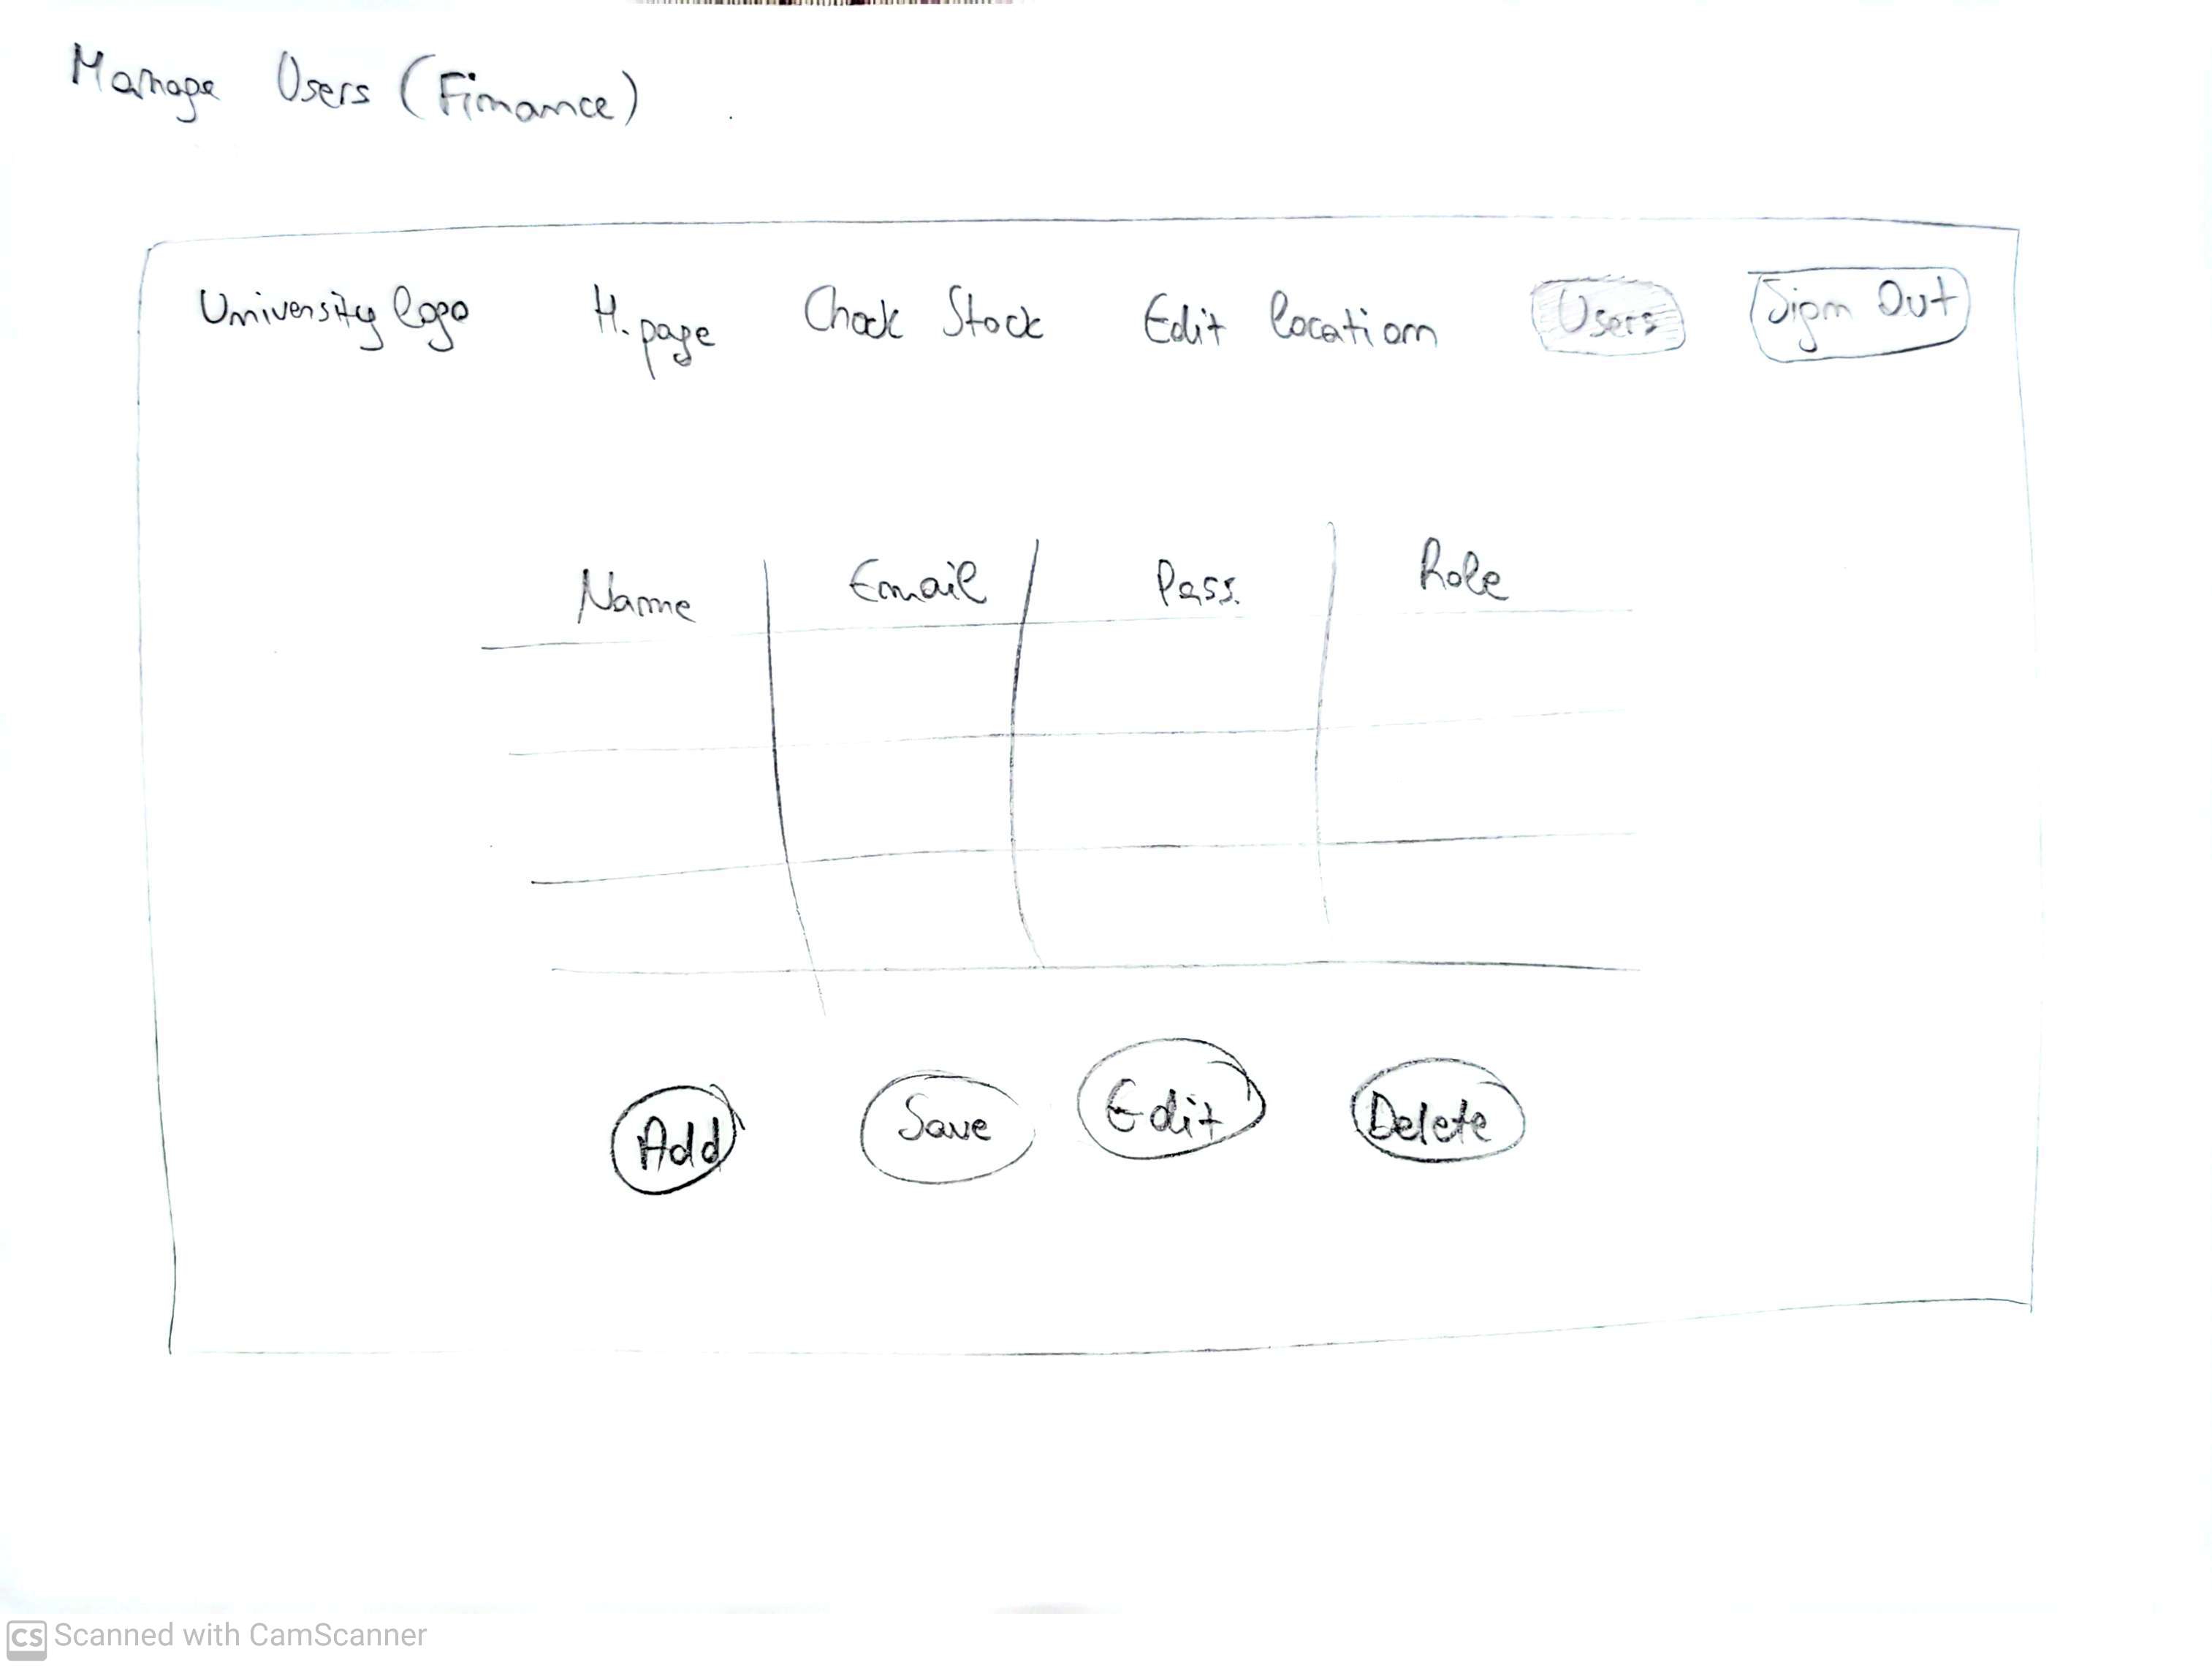 Manage Users (Finance)
University logo H.page Check Stock Edit location Users Sign Out
Name Email Pass. Role
Add Save Edit Delete
CS Scanned with CamScanner